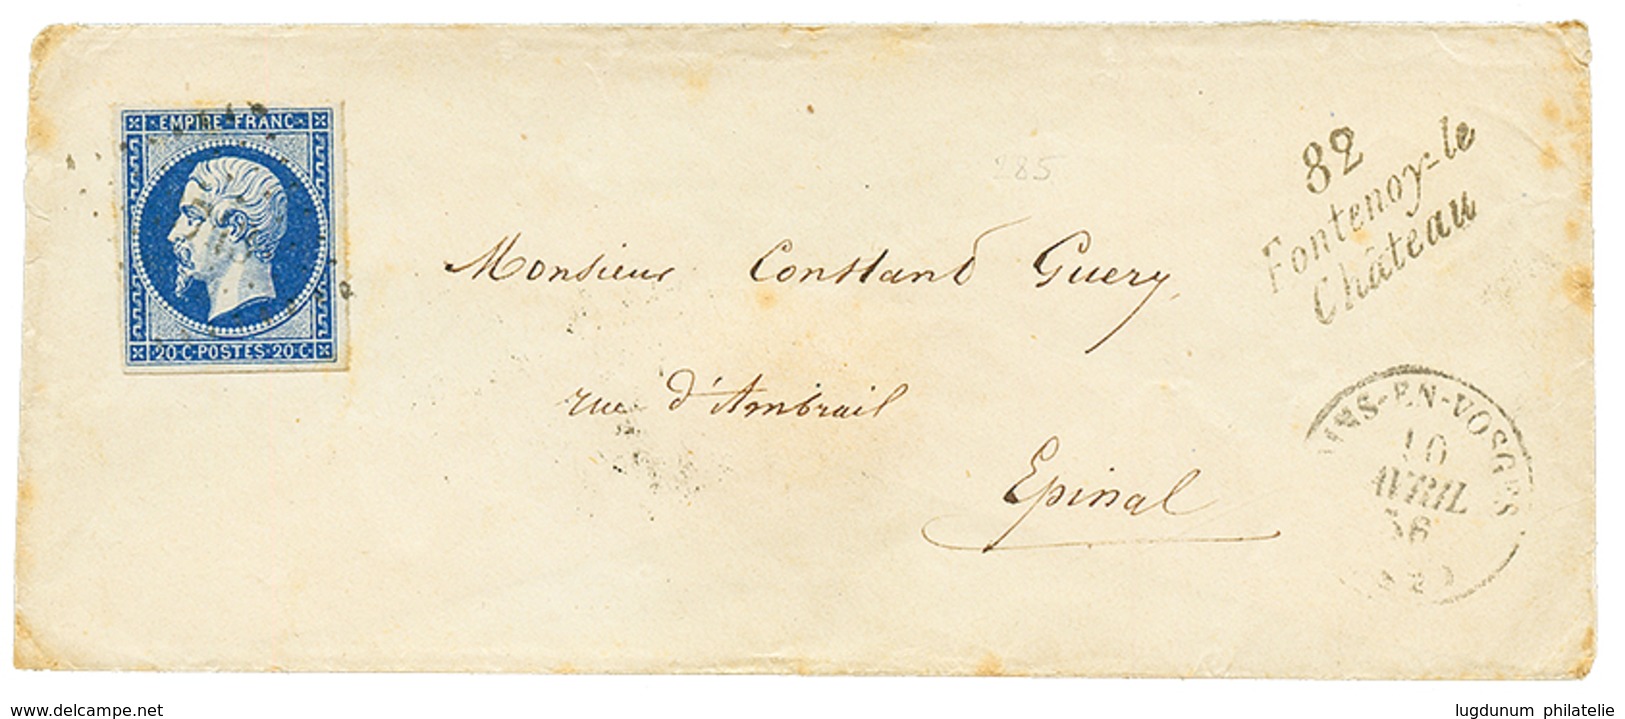 EMPIRE FRANC
20 C·POSTES·20 C
285
82
Fontenoy-le
Château
Monsieur Constand Guery
rue d'Ambrail
Epinal
INS-EN-VOSGES
10
AVRIL
56
www.delcampe.net
lugdunum philatelie